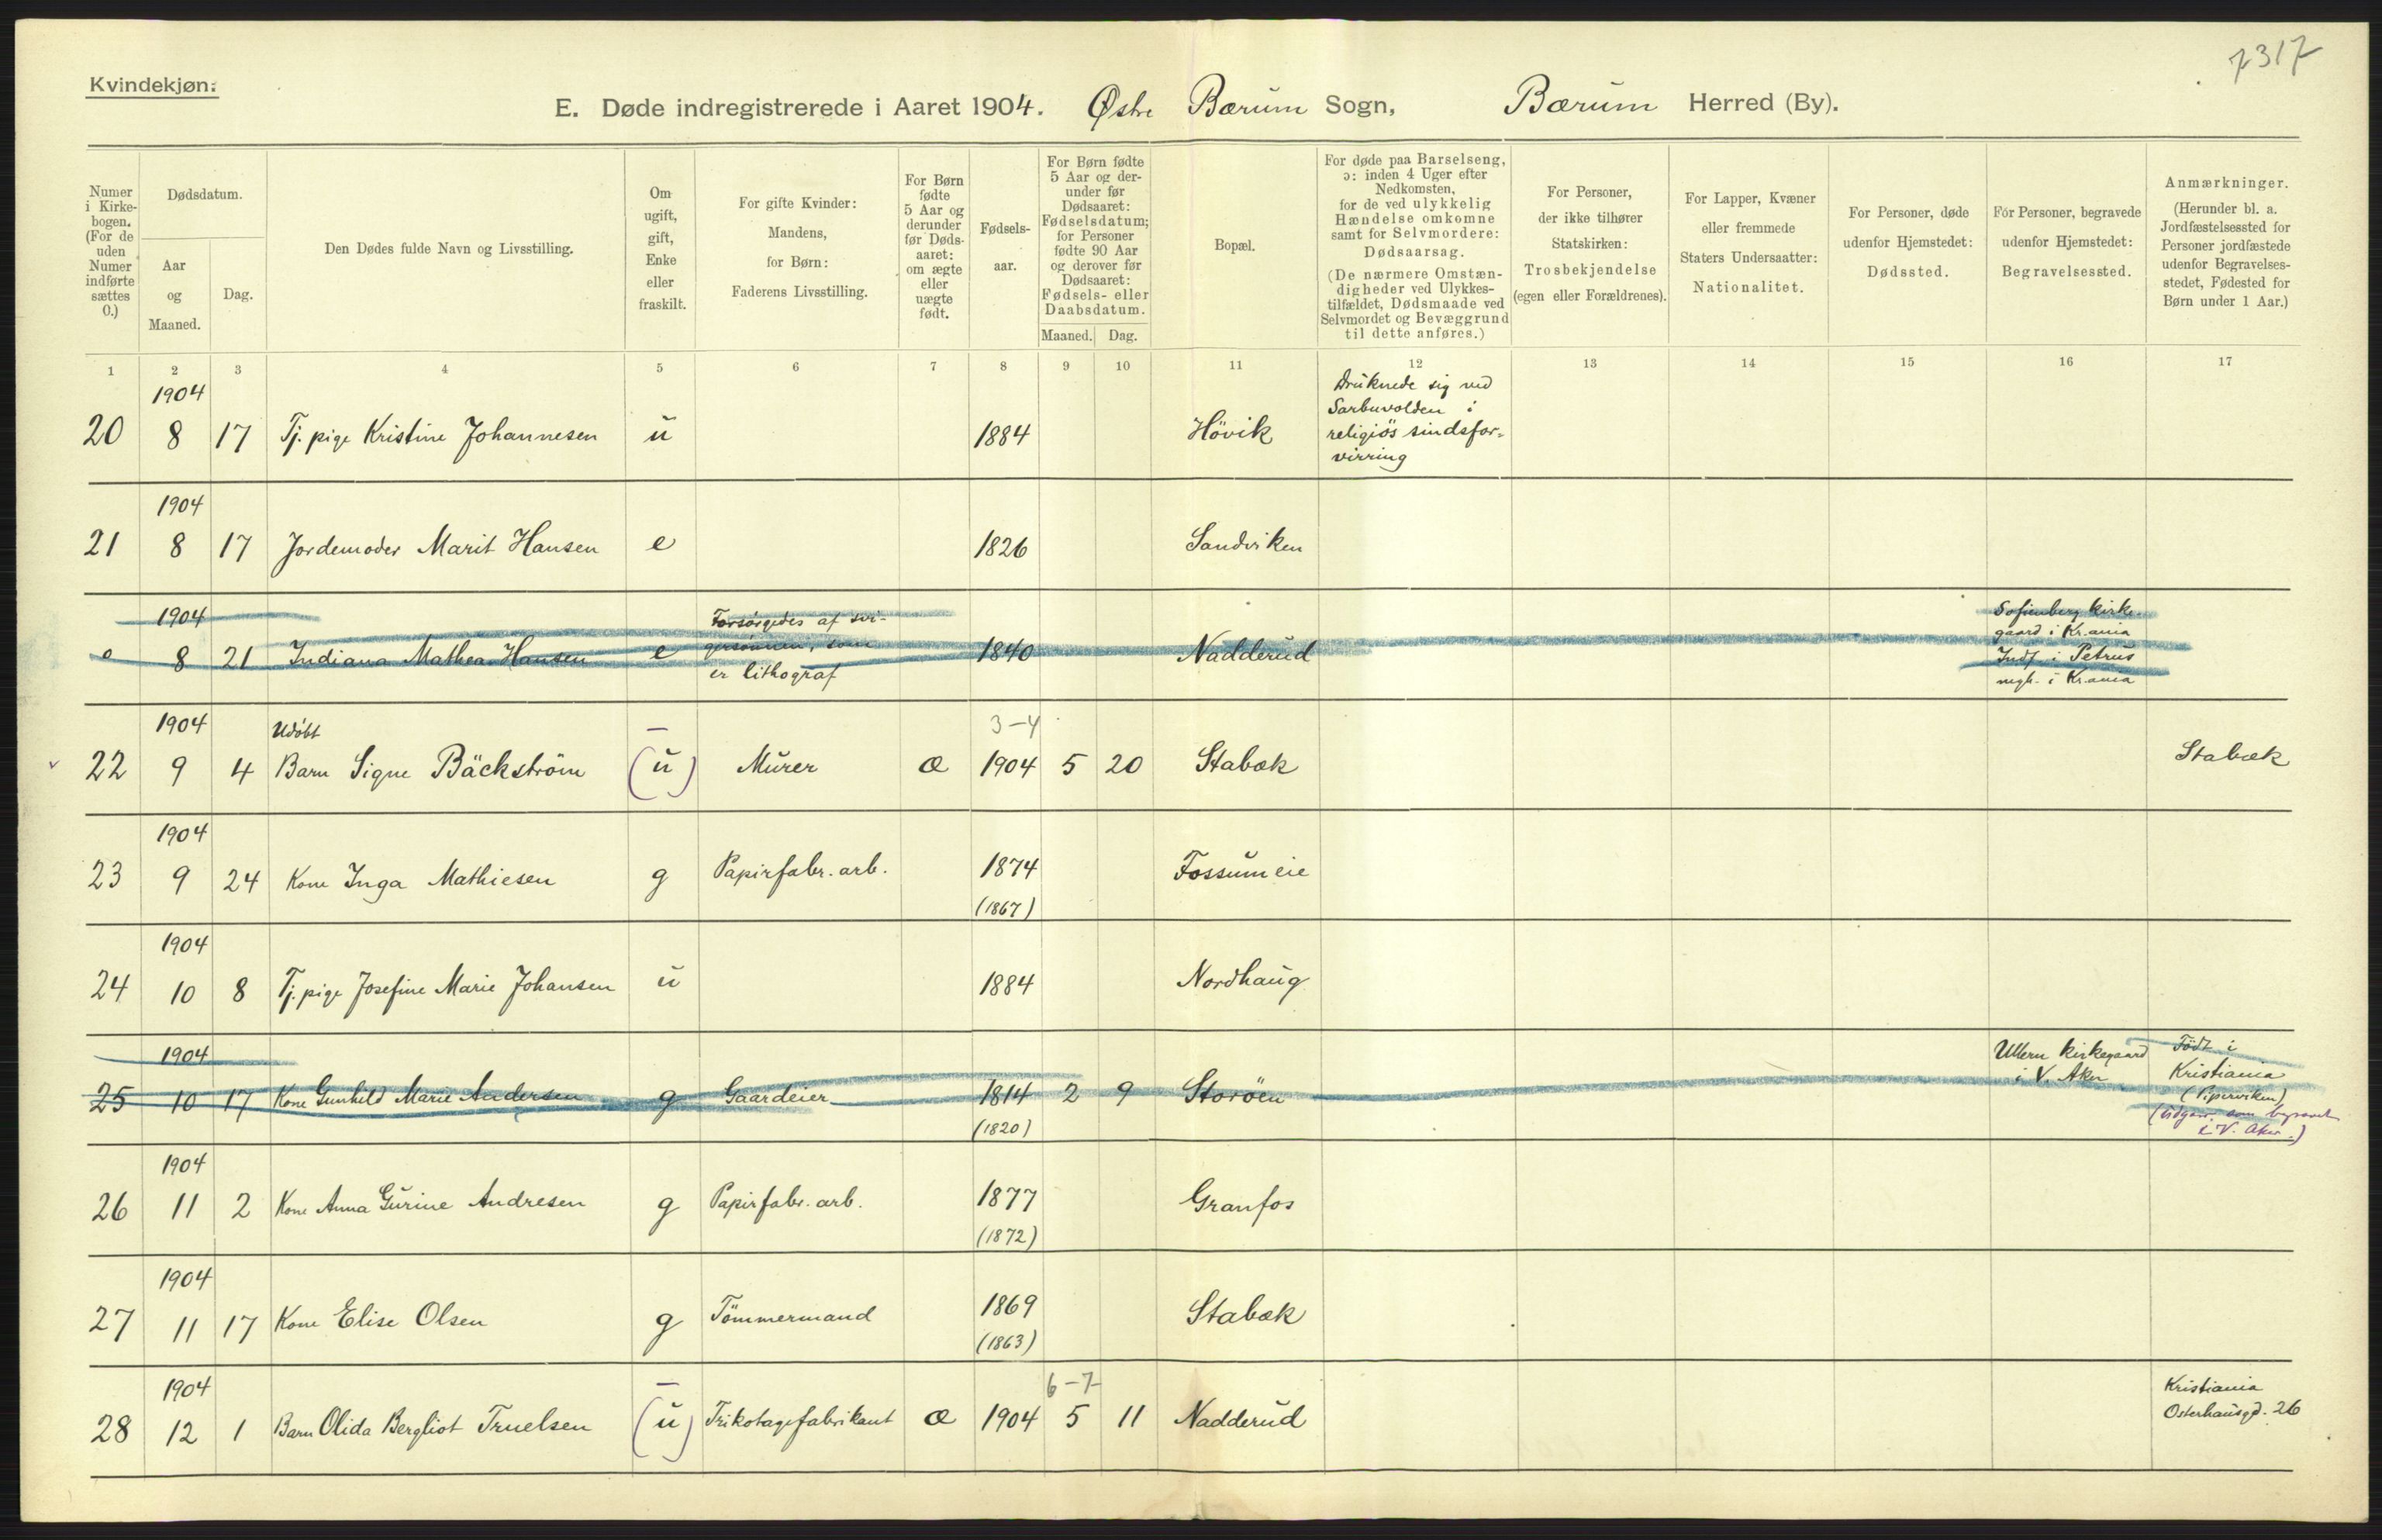 7317
Kvindekjøn:
E. Døde indregistrerede i Aaret 1904. Østre Bærum Sogn, Bærum Herred (By).
Numer
i Kirke-
bogen.
(For de
uden
Numer
indførte
sættes
0.)
Dødsdatum.
Aar
og
Maaned.
Dag.
Den Dødes fulde Navn og Livsstilling.
Om
ugift,
gift,
Enke
eller
fraskilt.
For gifte Kvinder:
Mandens,
for Børn:
Faderens Livsstilling.
For Børn
fødte
5 Aar og
derunder
før Døds-
aaret:
om ægte
eller
uægte
født.
Fødsels-
aar.
For Børn fødte
5 Aar og der-
under før
Dødsaaret:
Fødselsdatum;
for Personer
fødte 90 Aar
og derover før
Dødsaaret:
Fødsels- eller
Daabsdatum.
Maaned. Dag.
Bopæl.
For døde paa Barselseng,
ɔ: inden 4 Uger efter
Nedkomsten,
for de ved ulykkelig
Hændelse omkomne
samt for Selvmordere:
Dødsaarsag.
(De nærmere Omstæn-
digheder ved Ulykkes-
tilfældet, Dødsmaade ved
Selvmordet og Bevæggrund
til dette anføres.)
For Personer,
der ikke tilhører
Statskirken:
Trosbekjendelse
(egen eller Forældrenes).
For Lapper, Kvæner
eller fremmede
Staters Undersaatter:
Nationalitet.
For Personer, døde
udenfor Hjemstedet:
Dødssted.
For Personer, begravede
udenfor Hjemstedet:
Begravelsessted.
Anmærkninger.
(Herunder bl. a.
Jordfæstelsessted for
Personer jordfæstede
udenfor Begravelses-
stedet, Fødested for
Børn under 1 Aar.)
1 2 3 4 5 6 7 8 9 10 11 12 13 14 15 16 17
1904
20 8 17 Tj. pige Kristine Johannesen u 1884 Hövik
Druknede sig ved
Sarbuvolden i
religiös sindsfor-
virring
1904
21 8 17 Jordemoder Marit Hansen e 1826 Sandviken
1904
0 8 21 Indiana Mathea Hansen e
Forsörgedes af svi-
gersönnen, som
er lithograf
1840 Nadderud
Sofienberg kirke-
gaard i Kr.ania
Indf. i Petrus
mgh. i Kr.ania
1904 Udöbt – 3-4
22 9 4 Barn Signe Bäckström (u) Murer æ 1904 5 20 Stabæk Stabæk
1904
23 9 24 Kone Inga Mathiesen g Papirfabr. arb. 1874 Fossum eie
(1867)
1904
24 10 8 Tj. pige Josefine Marie Johansen u 1884 Nordhaug
1904
25 10 17 Kone Gunhild Marie Andersen g Gaardeier 1814 2 9 Storöen
(1820)
Ullern kirkegaard
i V. Aker
Födt i
Kristiania
(Piperviken)
(Udgaar som begravet
i V. Aker.)
1904
26 11 2 Kone Anna Gurine Andresen g Papirfabr. arb. 1877 Granfos
(1872)
1904
27 11 17 Kone Elise Olsen g Tömmermand 1869 Stabæk
(1863)
1904 – 6-7
28 12 1 Barn Olida Bergliot Truelsen (u) Trikotagefabrikant æ 1904 5 11 Nadderud
Kristiania
Osterhausgd. 26